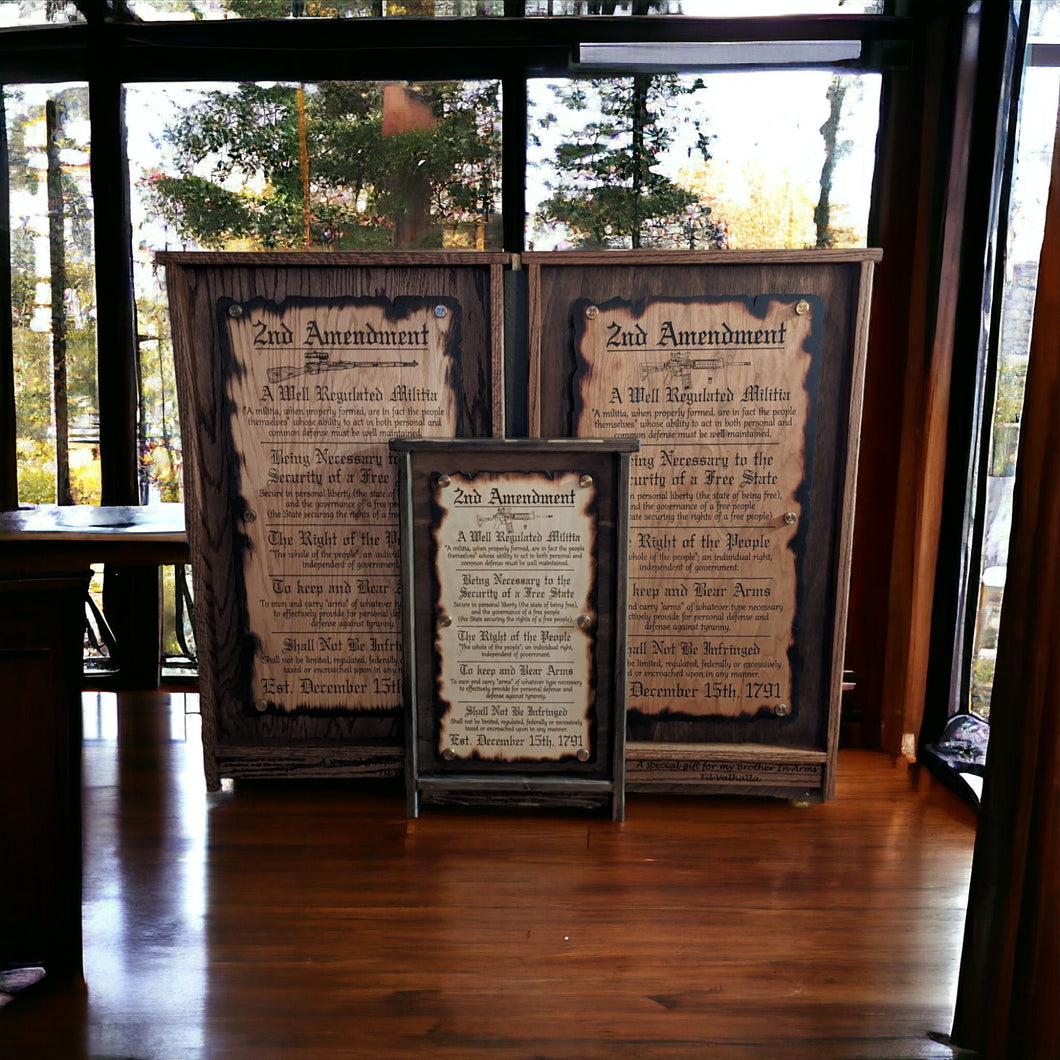 2nd Amendment
A Well Regulated Militia
"A militia, when properly formed, are in fact the people
themselves" whose ability to act in both personal and
common defense must be well maintained.
Being Necessary to the
Security of a Free
Secure in personal liberty (the state of
and the governance of a free
(the State securing the rights of a free
The Right of the
"The whole of the people"; an
independent of government.
To keep and Bear
To own and carry "arms" of whatever
to effectively provide for personal
defense against tyranny.
Shall Not Be
Shall not be limited, regulated, federally
taxed or encroached upon in any
Est. December 15th
A special gift for
2nd Amendment
A Well Regulated Militia
"A militia, when properly formed, are in fact the people
themselves" whose ability to act in both personal and
common defense must be well maintained.
Being Necessary to the
Security of a Free State
Secure in personal liberty (the state of being free),
and the governance of a free people
(the State securing the rights of a free people).
The Right of the People
"The whole of the people"; an individual right,
independent of government.
To keep and Bear Arms
To own and carry "arms" of whatever type necessary
to effectively provide for personal defense and
defense against tyranny.
Shall Not Be Infringed
Shall not be limited, regulated, federally or excessively
taxed or encroached upon in any manner.
Est. December 15th, 1791
2nd Amendment
A Well Regulated Militia
"A militia, when properly formed, are in fact the people
themselves" whose ability to act in both personal and
common defense must be well maintained.
Being Necessary to the
Security of a Free State
in personal liberty (the state of being free),
and the governance of a free people
State securing the rights of a free people).
Right of the People
whole of the people"; an individual right,
independent of government.
keep and Bear Arms
and carry "arms" of whatever type necessary
effectively provide for personal defense and
defense against tyranny.
Not Be Infringed
be limited, regulated, federally or excessively
or encroached upon in any manner.
December 15th, 1791
A special gift for my Brother In Arms
Til Valhalla